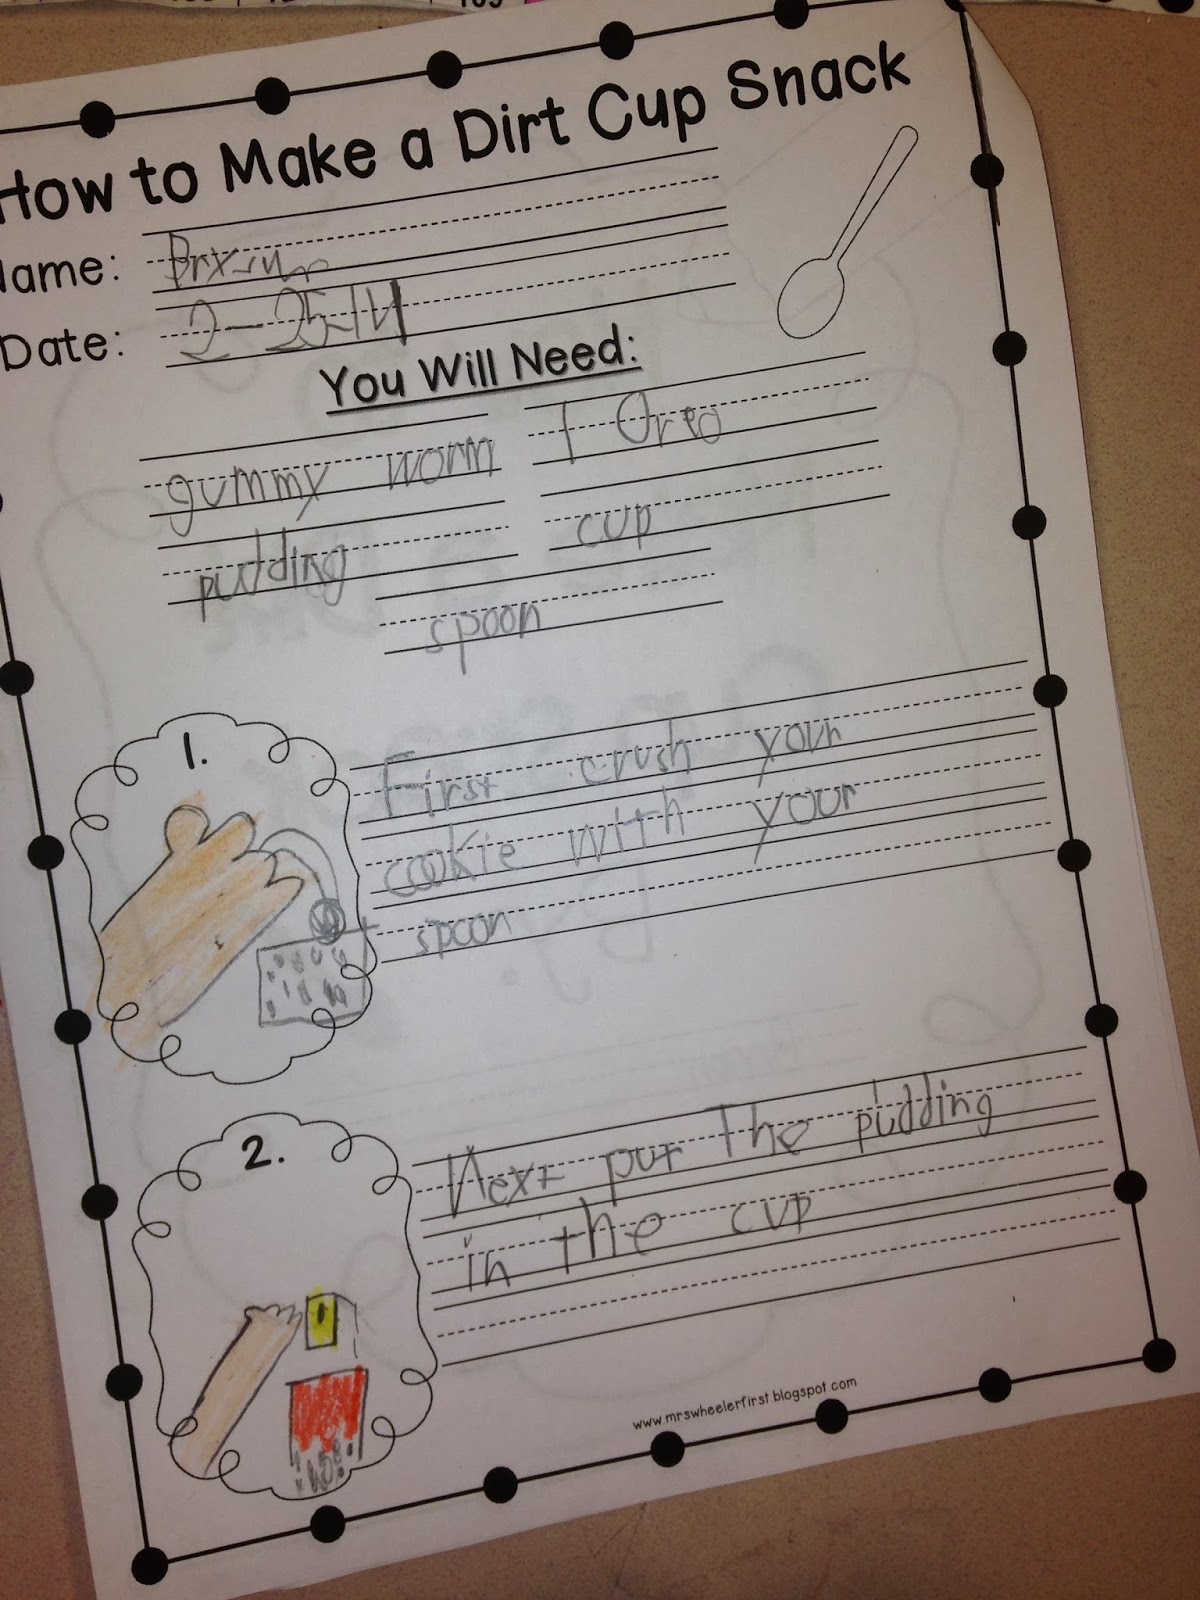 How to Make a Dirt Cup Snack
Name:
Date: 2-25-14
You Will Need:
gummy worm 1 Oreo
pudding cup
spoon
1.
First crush your
cookie with your
spoon
2.
Next put the pudding
in the cup
www.mrswheelerfirst.blogspot.com